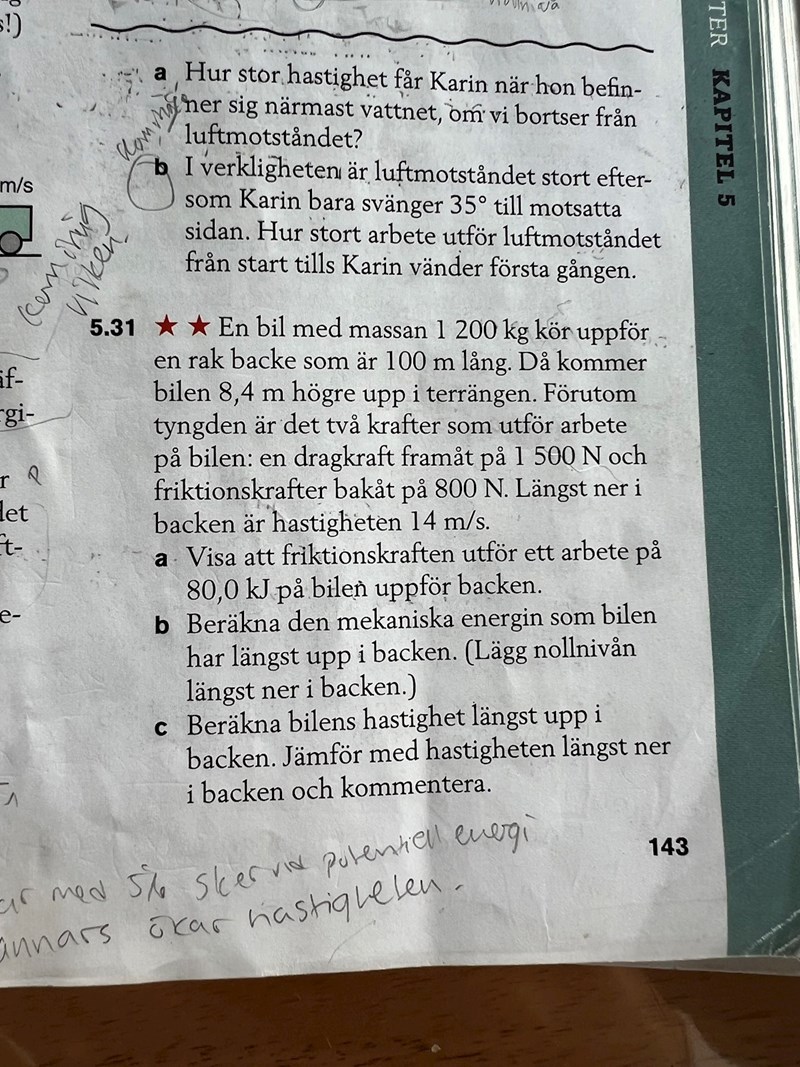 s!)
TER KAPITEL 5
a Hur stor hastighet får Karin när hon befin-
ner sig närmast vattnet, om vi bortser från
luftmotståndet?
b I verkligheten är luftmotståndet stort efter-
som Karin bara svänger 35° till motsatta
sidan. Hur stort arbete utför luftmotståndet
från start tills Karin vänder första gången.
m/s
5.31 ★ ★ En bil med massan 1 200 kg kör uppför
en rak backe som är 100 m lång. Då kommer
bilen 8,4 m högre upp i terrängen. Förutom
tyngden är det två krafter som utför arbete
på bilen: en dragkraft framåt på 1 500 N och
friktionskrafter bakåt på 800 N. Längst ner i
backen är hastigheten 14 m/s.
a Visa att friktionskraften utför ett arbete på
80,0 kJ på bilen uppför backen.
b Beräkna den mekaniska energin som bilen
har längst upp i backen. (Lägg nollnivån
längst ner i backen.)
c Beräkna bilens hastighet längst upp i
backen. Jämför med hastigheten längst ner
i backen och kommentera.
äf-
rgi-
r
let
ft-
e-
143
ar med sker potentiell energi
annars ökar hastigheten.